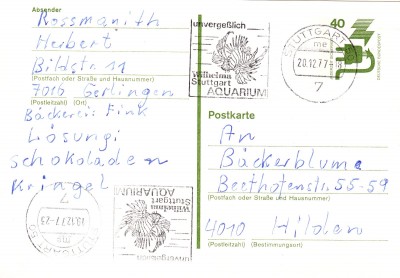 Absender
Rossmanith
Herbert
Bildstr 11
(Postfach oder Straße und Hausnummer)
7016 Gerlingen
(Postleitzahl) (Ort)
Bäckerei: Fink
Lösung:
Schokoladen
Kringel
unvergeßlich
Wilhelma
Stuttgart
AQUARIUM
STUTTGART
me
20.12.77-18
7
40
DEUTSCHE BUNDESPOST
Postkarte
An
Bäckerblume
Beethovenstr. 55-59
(Postfach oder Straße und Hausnummer)
4010 Hilden
(Postleitzahl) (Bestimmungsort)
7
13.12.77-23
me
STUTTGART
unvergeßlich
Wilhelma
Stuttgart
AQUARIUM